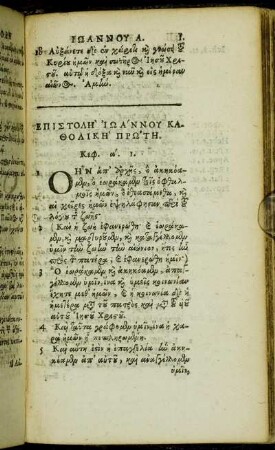 ΙΩΑΝΝΟΥ Α. 1.
18 Αὐξάνετε δὲ ἐν χάριτι καὶ γνώσει τοῦ
Κυρίου ἡμῶν καὶ σωτῆρος Ἰησοῦ Χρι-
στοῦ. αὐτῷ ἡ δόξα καὶ νῦν καὶ εἰς ἡμέραν
αἰῶνος. Ἀμήν.
ΕΠΙΣΤΟΛΗ ἸΩΑ΄ΝΝΟΥ ΚΑ-
ΘΟΛΙΚΗ΄ ΠΡΩ΄ΤΗ.
Κεφ. α΄. 1.
1 Ὃ ἮΝ ἀπ' ἀρχῆς, ὃ ἀκηκόα-
μεν, ὃ ἑωράκαμεν τοῖς ὀφθαλ-
μοῖς ἡμῶν, ὃ ἐθεασάμεθα, καὶ
αἱ χεῖρες ἡμῶν ἐψηλάφησαν περὶ τοῦ
λόγου τῆς ζωῆς·
2 Καὶ ἡ ζωὴ ἐφανερώθη, καὶ ἑωράκα-
μεν, καὶ μαρτυροῦμεν, καὶ ἀπαγγέλλομεν
ὑμῖν τὴν ζωὴν τὴν αἰώνιον, ἥτις ἦν
πρὸς τὸν πατέρα, καὶ ἐφανερώθη ἡμῖν·
3 Ὃ ἑωράκαμεν καὶ ἀκηκόαμεν, ἀπαγ-
γέλλομεν ὑμῖν, ἵνα καὶ ὑμεῖς κοινωνίαν
ἔχητε μεθ' ἡμῶν, καὶ ἡ κοινωνία δὲ ἡ
ἡμετέρα μετὰ τοῦ πατρὸς καὶ μετὰ τοῦ υἱοῦ
αὐτοῦ Ἰησοῦ Χριστοῦ.
4 Καὶ ταῦτα γράφομεν ὑμῖν, ἵνα ἡ χα-
ρὰ ἡμῶν ᾖ πεπληρωμένη.
5 Καὶ αὕτη ἐστὶν ἡ ἐπαγγελία ἣν ἀκη-
κόαμεν ἀπ' αὐτοῦ, καὶ ἀναγγέλλομεν
ὑμῖν,